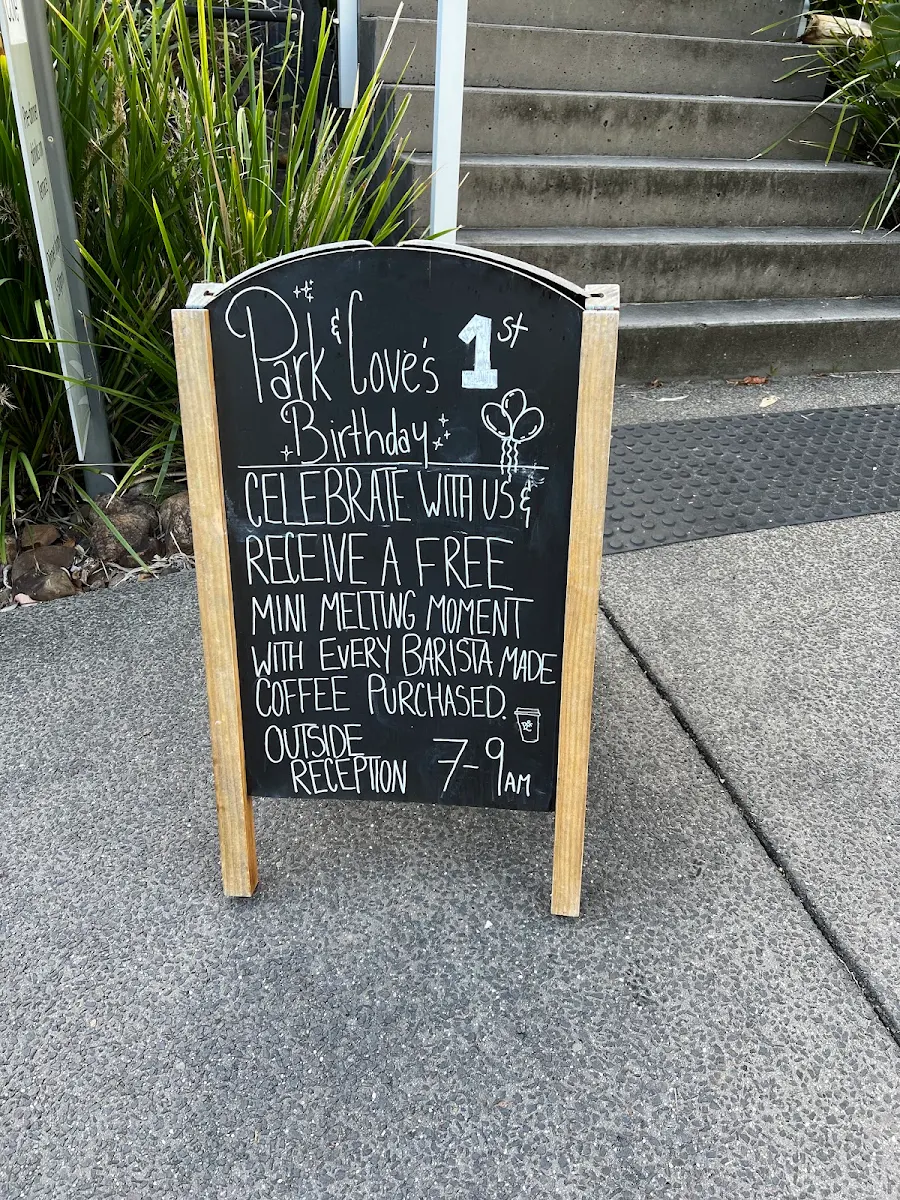 Park & Cove's 1st
Birthday
CELEBRATE WITH US &
RECEIVE A FREE
MINI MELTING MOMENT
WITH EVERY BARISTA MADE
COFFEE PURCHASED.
OUTSIDE
RECEPTION 7-9AM